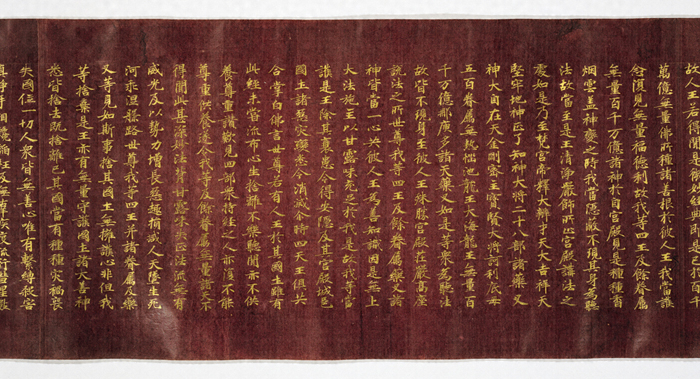 萬億無量佛所種諸善根於彼人王我當護
念復見無量福德利故我等四王及餘眷屬
無量百千萬億諸神於自宮殿見是種種香
烟雲蓋神變之時我當隱蔽不現其身為聽
法故當至是王清淨嚴飾所止宮殿講法之
處如是乃至梵宮帝釋大辯才天大吉祥天
堅牢地神正了知神大將二十八部諸藥叉
神大自在天金剛密主寶賢大將訶利底母
五百眷屬無熱惱池龍王大海龍王無量百
千万億那庾多諸天藥叉如是等衆為聽法
故皆不現身至彼人王殊勝宮殿莊嚴高座
說法之所世尊我等四王及餘眷屬藥叉諸
神皆當一心共彼人王為善知識因是無上
大法施主以甘露味充足於我是故我等當
護是王除其衰患令得安隱及其宮殿城邑
國土諸惡灾變悉令消滅尒時四天王俱共
合掌白佛言世尊若有人王於其國土雖有
此經未甞流布心生捨離不樂聽聞亦不供
養尊重讚歎見四部衆持經之人亦復不能
尊重供養遂令我等及餘眷屬無量諸天不
得聞此甚深妙法背甘露味失正法流無有
威光及以勢力增長惡趣損減人天墜生死
河乖涅槃路世尊我等四王并諸眷屬及藥
叉等見如斯事捨其國土無擁護心非但我
等捨棄是王亦有無量守護國土諸大善神
悉皆捨去既捨離已其國當有種種灾禍喪
失國位一切人衆皆無善心唯有繫縛殺害